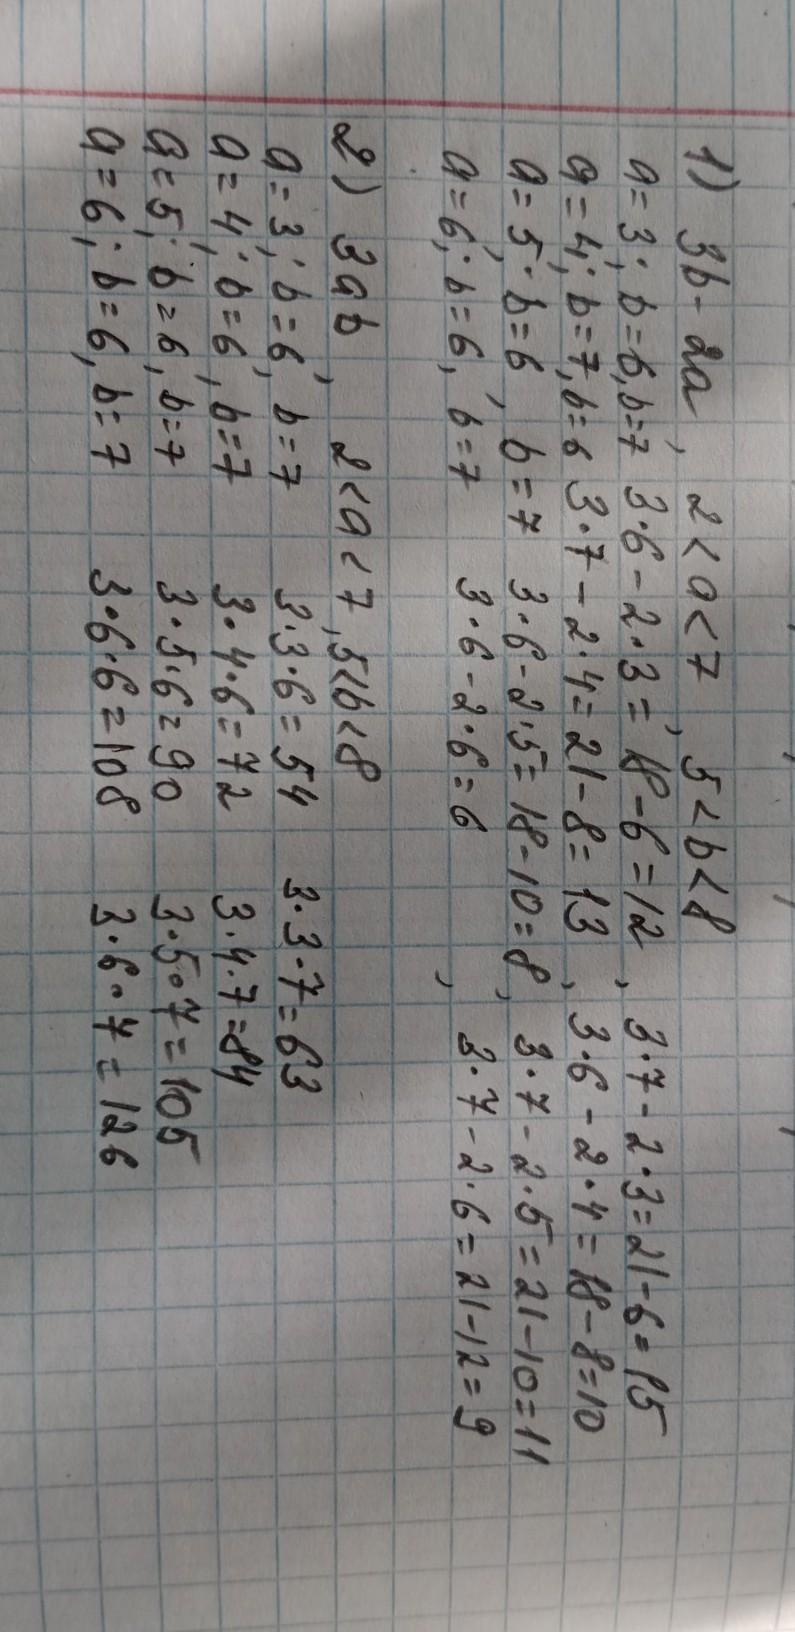 1) 3b - 2a, 2 < a < 7, 5 < b < 8
a = 3; b = 6, b = 7 3·6 - 2·3 = 18 - 6 = 12, 3·7 - 2·3 = 21 - 6 = 15
a = 4; b = 7, b = 6 3·7 - 2·4 = 21 - 8 = 13, 3·6 - 2·4 = 18 - 8 = 10
a = 5; b = 6, b = 7 3·6 - 2·5 = 18 - 10 = 8, 3·7 - 2·5 = 21 - 10 = 11
a = 6; b = 6, b = 7 3·6 - 2·6 = 6, 3·7 - 2·6 = 21 - 12 = 9
2) 3ab, 2 < a < 7, 5 < b < 8
a = 3; b = 6, b = 7 3·3·6 = 54 3·3·7 = 63
a = 4; b = 6, b = 7 3·4·6 = 72 3·4·7 = 84
a = 5; b = 6, b = 7 3·5·6 = 90 3·5·7 = 105
a = 6; b = 6, b = 7 3·6·6 = 108 3·6·7 = 126